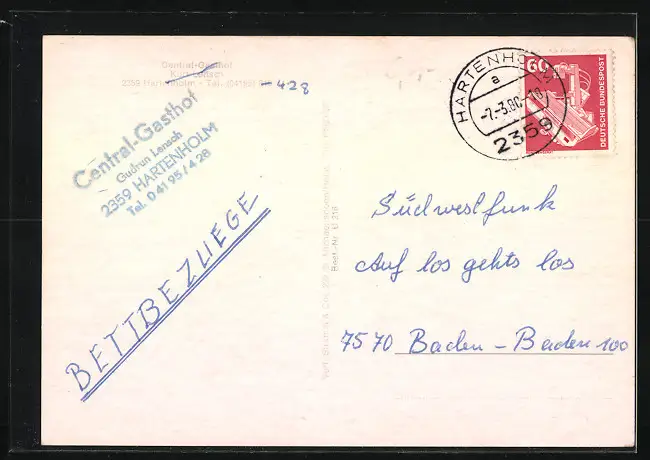 Central-Gasthof
2359 Hartenholm - Tel. (04195)
- 428
Central-Gasthof
Gudrun Lensch
2359 HARTENHOLM
Tel. 041 95/4 28
BETTBEZLIEGE
HARTENHOLM
a
-7.-3.80.-18
2359
60
DEUTSCHE BUNDESPOST
Südwestfunk
Auf los gehts los
7570 Baden-Baden 100
Best.-Nr. U 218